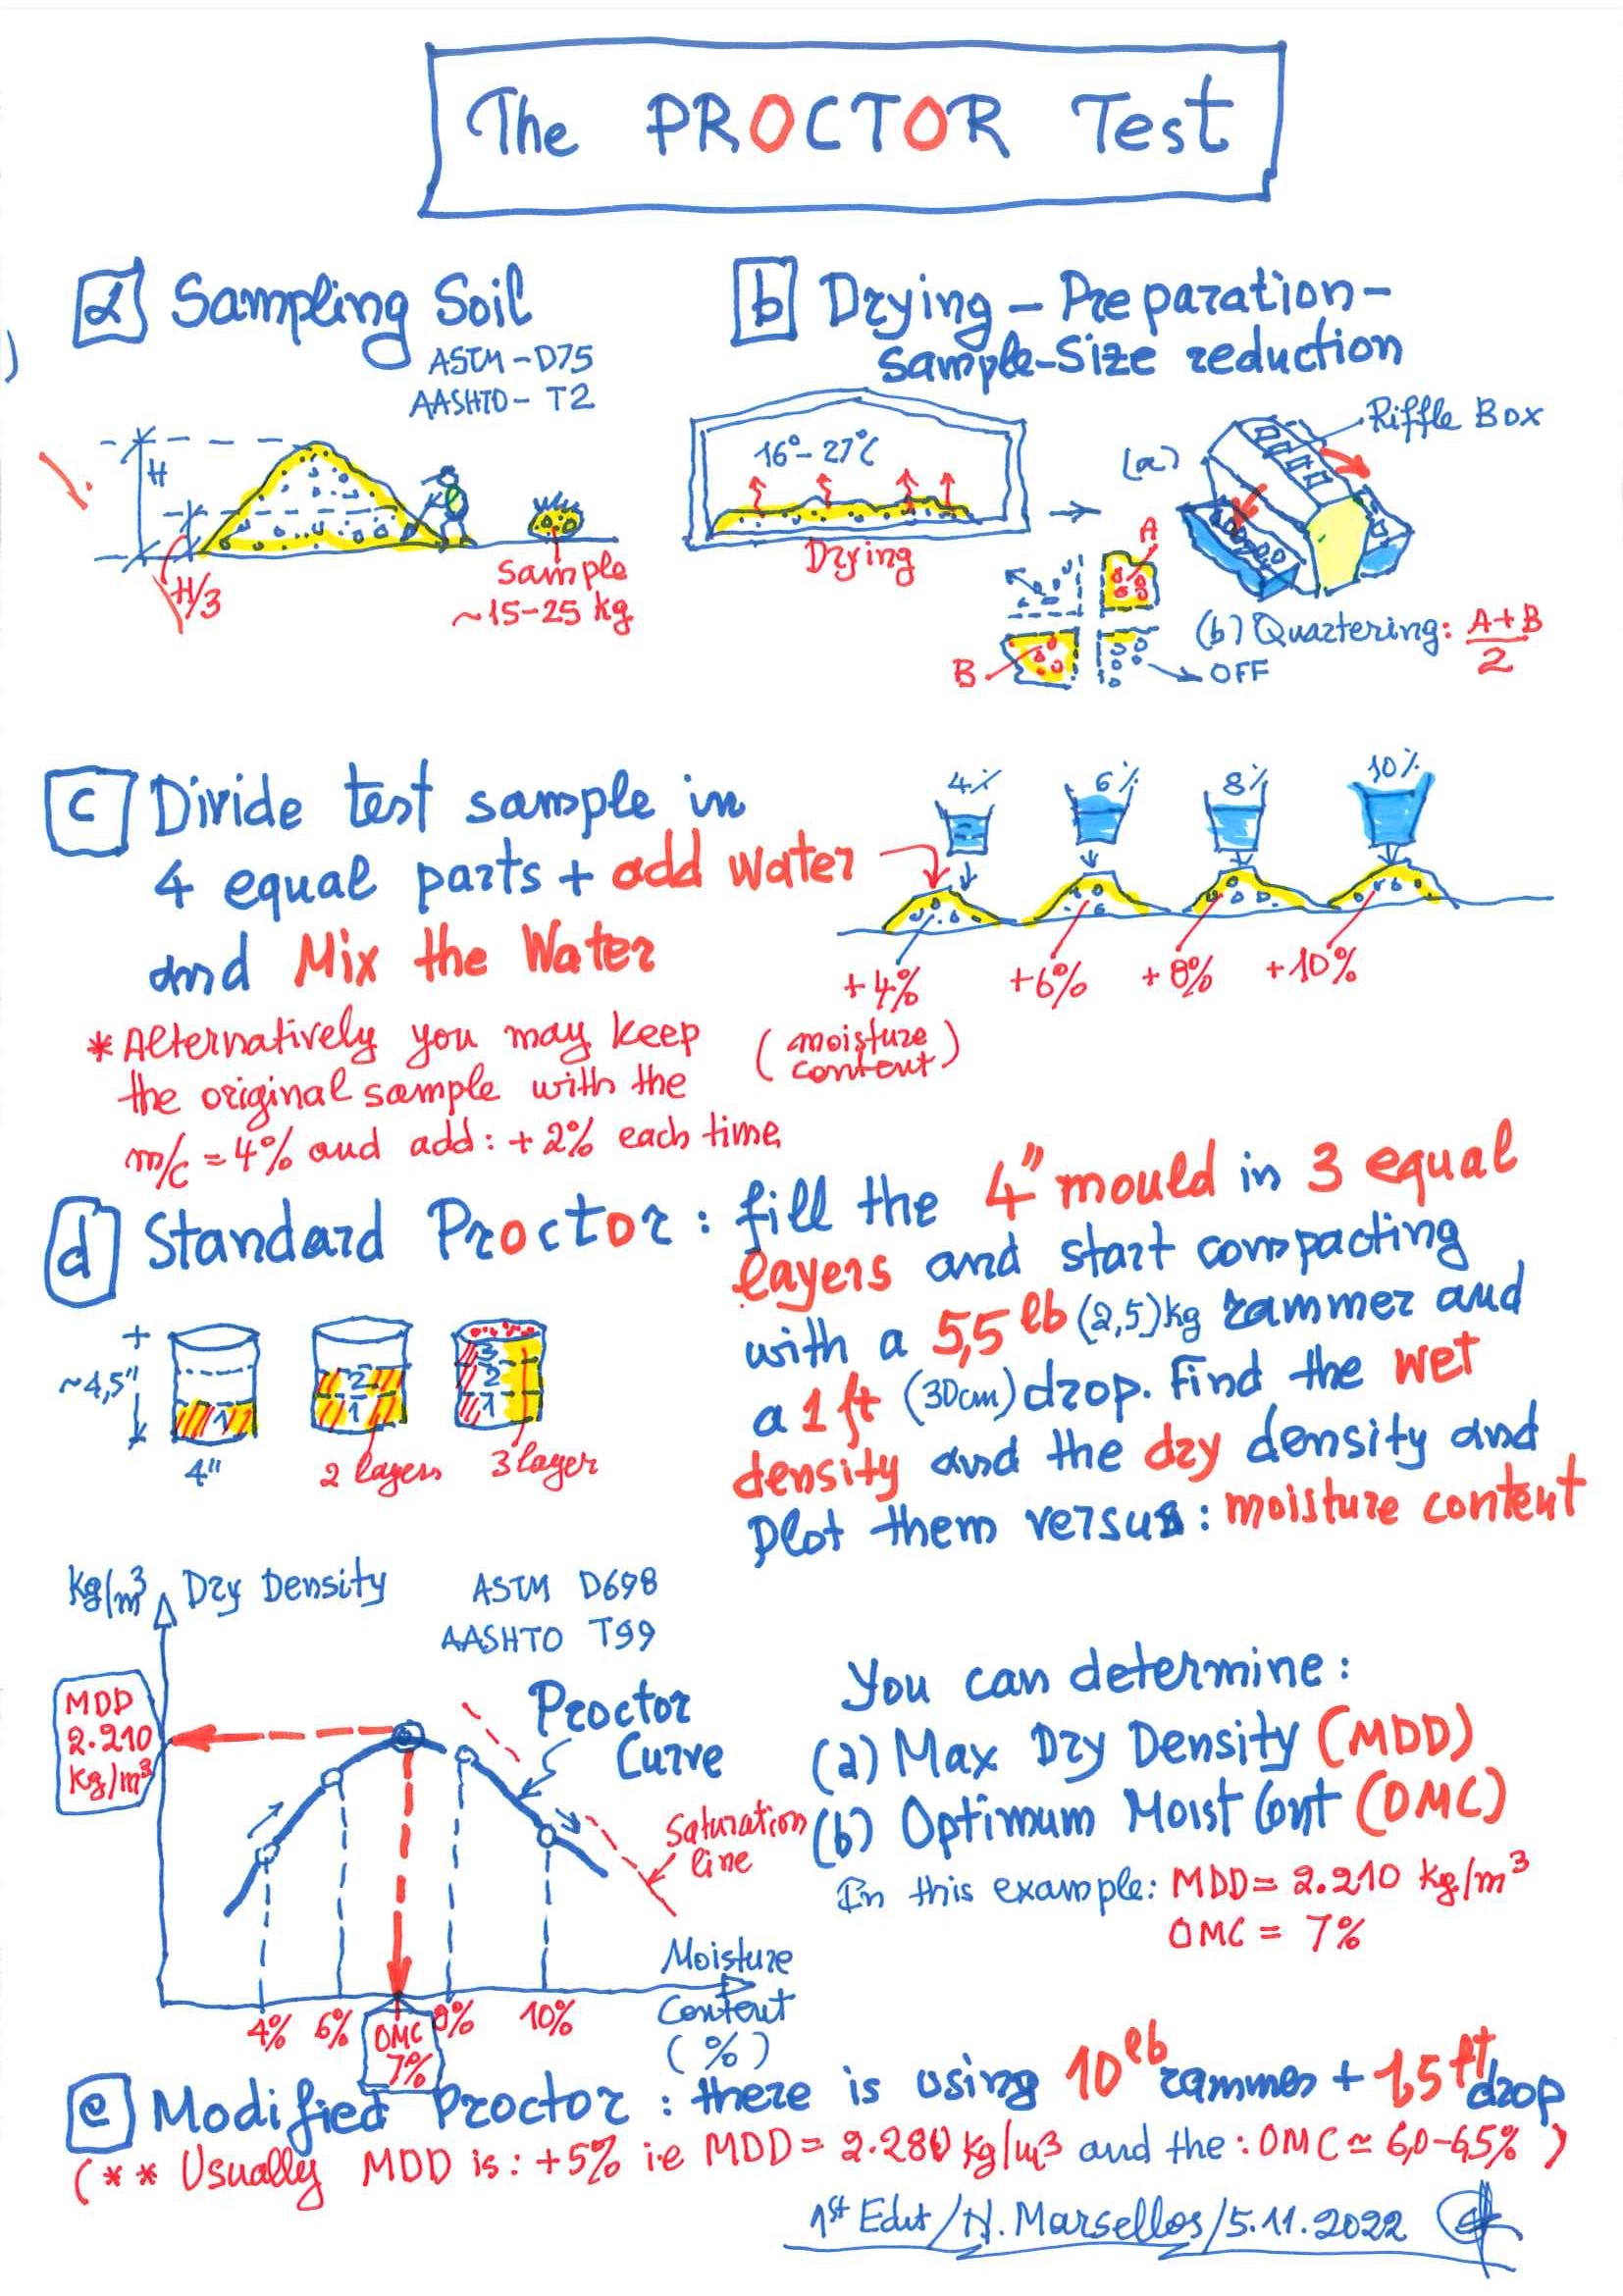 The PROCTOR Test
a Sampling Soil
ASTM-D75
AASHTO-T2
H
H/3
Sample
~15-25 kg
b Drying - Preparation-
Sample-Size reduction
16°-27°C
Drying
(a)
Riffle Box
A
B
(b) Quartering: A+B
2
OFF
c Divide test sample in
4 equal parts + add water
and Mix the Water
4% 6% 8% 10%
+4% +6% +8% +10%
(moisture
content)
* Alternatively you may keep
the original sample with the
m/c = 4% and add: +2% each time
d Standard Proctor: fill the 4" mould in 3 equal
layers and start compacting
with a 5,5 lb (2,5)kg rammer and
a 1 ft (30cm) drop. Find the wet
density and the dry density and
Plot them versus: moisture content
~4,5"
1
4"
2
1
2 layers
3
2
1
3 layer
Kg/m³ Dry Density
ASTM D698
AASHTO T99
MDD
2.210
Kg/m³
Proctor
Curve
Saturation
line
Moisture
Content
(%)
4% 6% 8% 10%
OMC
7%
You can determine:
(a) Max Dry Density (MDD)
(b) Optimum Moist Cont (OMC)
In this example: MDD = 2.210 kg/m³
OMC = 7%
e Modified Proctor: there is using 10 lb rammer + 1,5 ft drop
(** Usually MDD is: +5% i.e MDD = 2.280 kg/m³ and the: OMC ≃ 6,0-6,5%)
1st Edit/N. Marsellos/5.11.2022